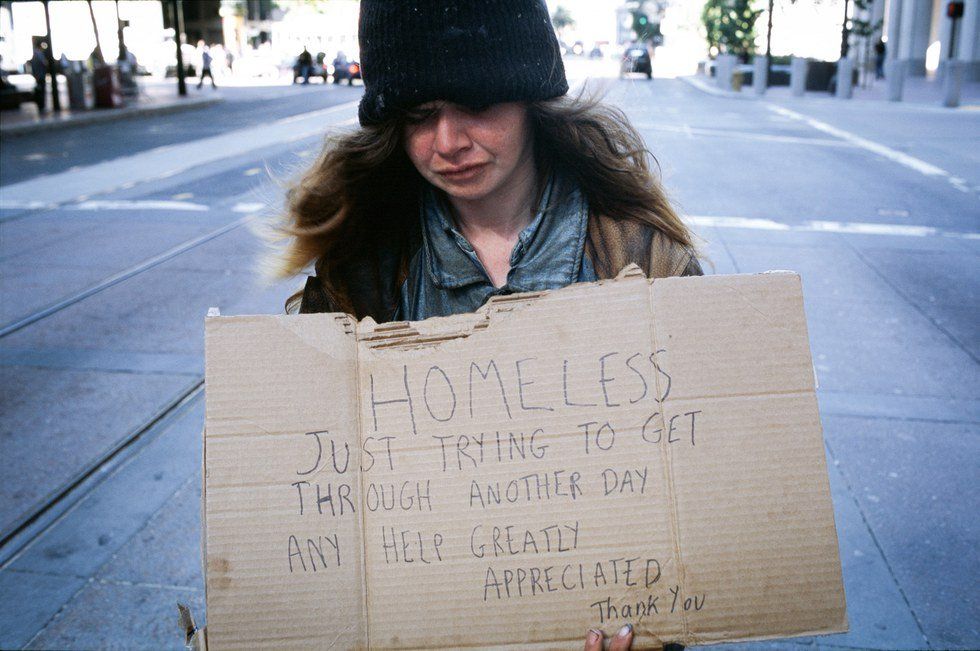 HOMELESS
JUST TRYING TO GET
THROUGH ANOTHER DAY
ANY HELP GREATLY
APPRECIATED
Thank You